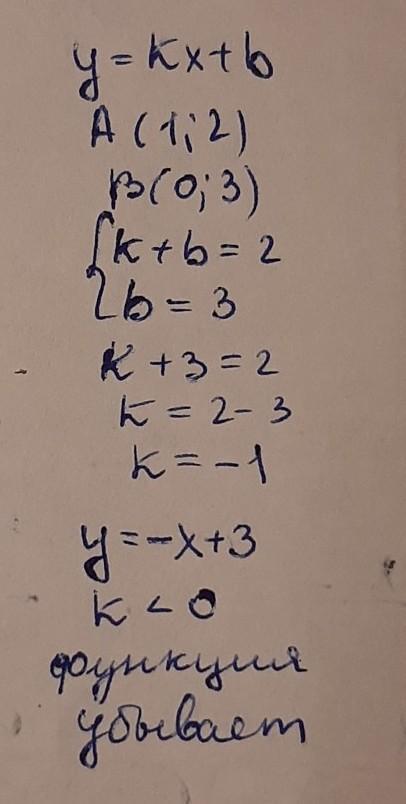 y = kx + b
A (1; 2)
B (0; 3)
{ k + b = 2
{ b = 3
k + 3 = 2
k = 2 - 3
k = -1
y = -x + 3
k < 0
функция
убывает